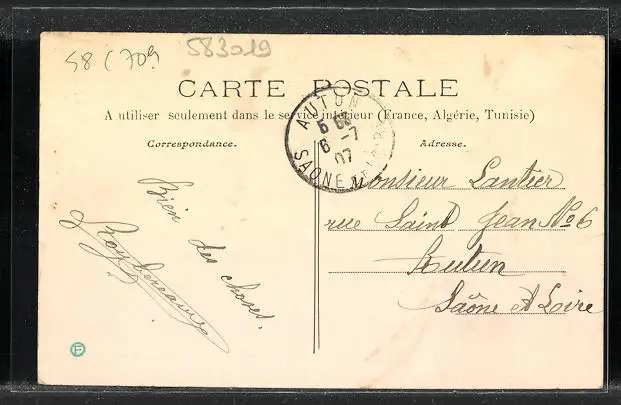 58 C 709
583019
CARTE POSTALE
A utiliser seulement dans le service intérieur (France, Algérie, Tunisie)
Correspondance.
Adresse.
AUTUN
6 -7
07
SAONE ET LOIRE
Bien des choses.
Monsieur Lantier
rue Saint Jean No 6
Autun
Saône et Loire